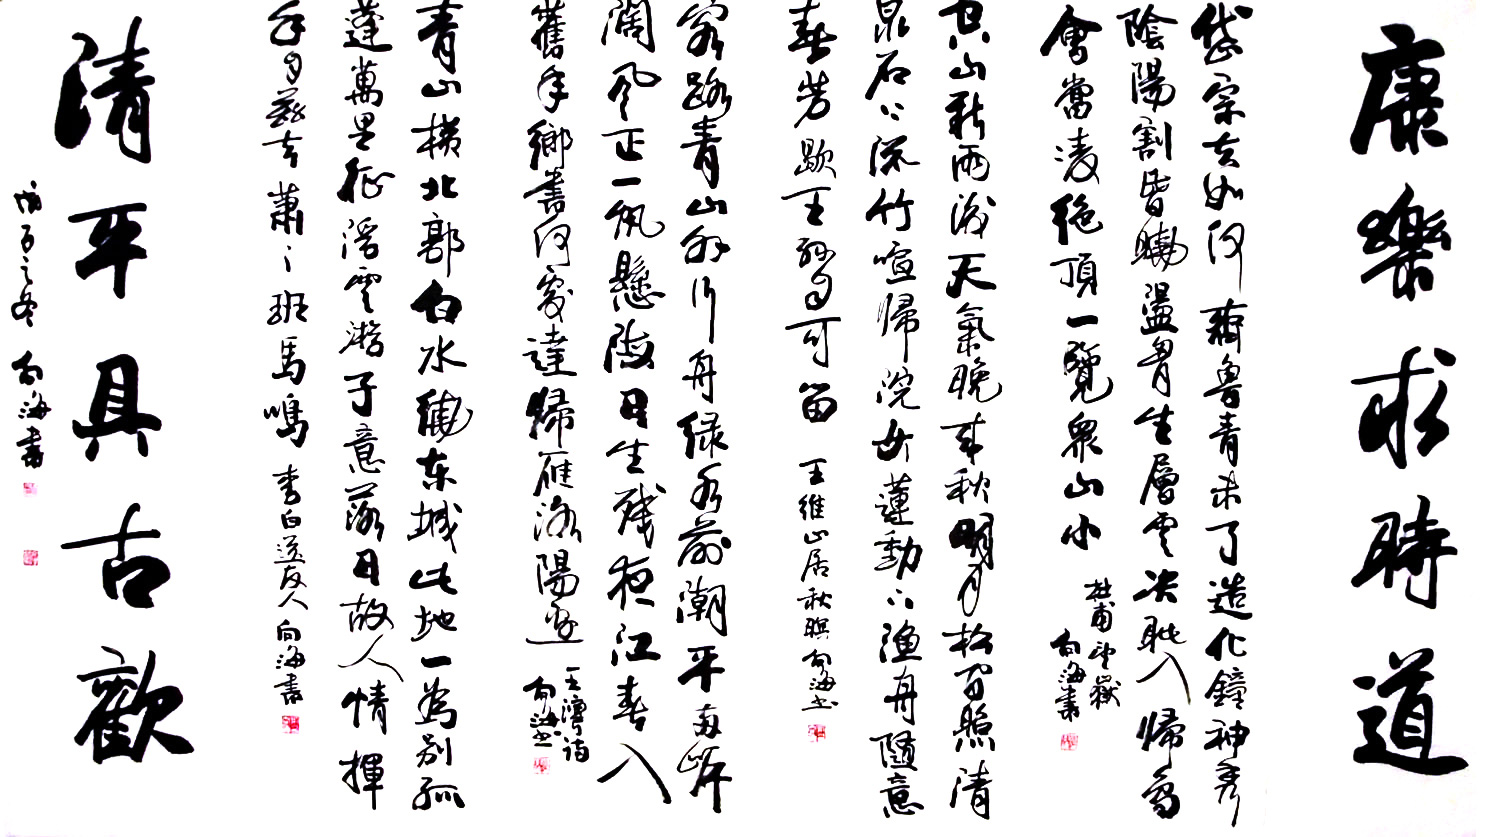 康樂求時道
岱宗夫如何齊魯青未了造化鐘神秀
陰陽割昏曉盪胷生層雲决眦入歸鳥
會當凌絶頂一覽衆山小
杜甫望嶽
向海書
空山新雨後天氣晚来秋明月松间照清
泉石上流竹喧歸浣女蓮動下漁舟隨意
春芳歇王孫自可留
王維山居秋暝向海书
客路青山外行舟绿水前潮平两岸
闊风正一帆懸海日生残夜江春入
舊年鄉書何處達歸雁洛陽邊
王灣詩
向海书
青山横北郭白水繞东城此地一為别孤
蓬萬里征浮雲游子意落日故人情揮
手自兹去蕭々班馬鳴
李白送友人向海書
清平具古歡
之冬
向海書